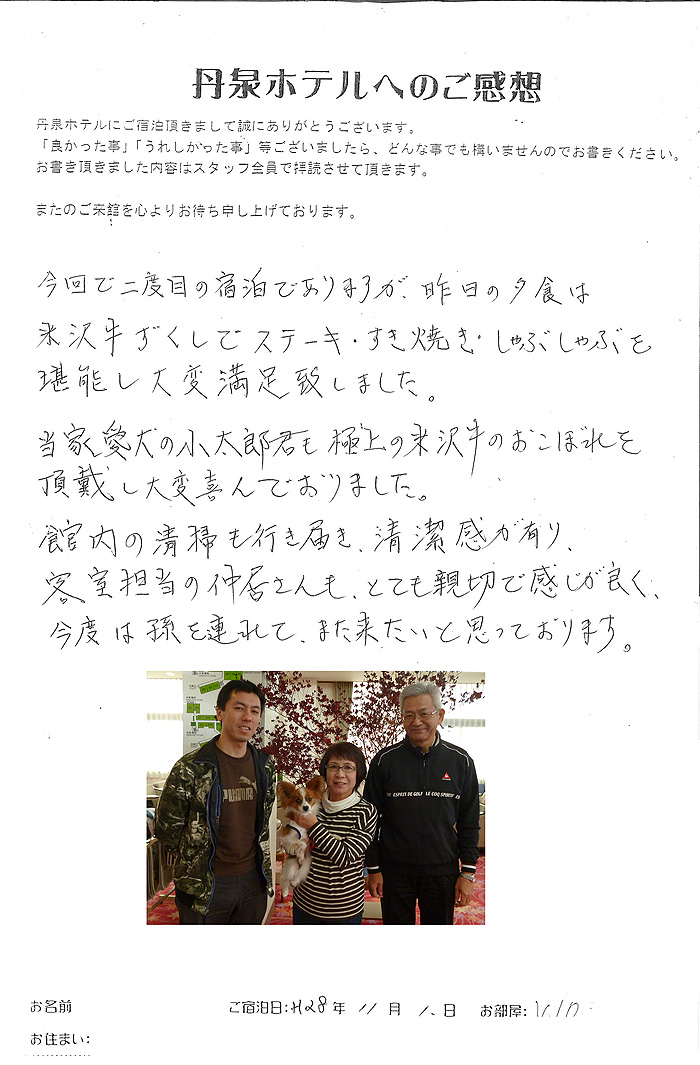 丹泉ホテルへのご感想
丹泉ホテルにご宿泊頂きまして誠にありがとうございます。
「良かった事」「うれしかった事」等ございましたら、どんな事でも構いませんのでお書きください。
お書き頂きました内容はスタッフ全員で拝読させて頂きます。
またのご来館を心よりお待ち申し上げております。
今回で二度目の宿泊でありますが、昨日の夕食は
米沢牛ずくしでステーキ・すき焼き・しゃぶしゃぶを
堪能し大変満足致しました。
当家愛犬の小太郎君も極上の米沢牛のおこぼれを
頂戴し大変喜んでおりました。
館内の清掃も行き届き、清潔感が有り、
客室担当の仲居さんも、とても親切で感じが良く、
今度は孫を連れて、また来たいと思っております。
PUMA
ESPRIT DE GOLF LE COQ SPORTIF
お名前
ご宿泊日:H28年 11月 日 お部屋:
お住まい: